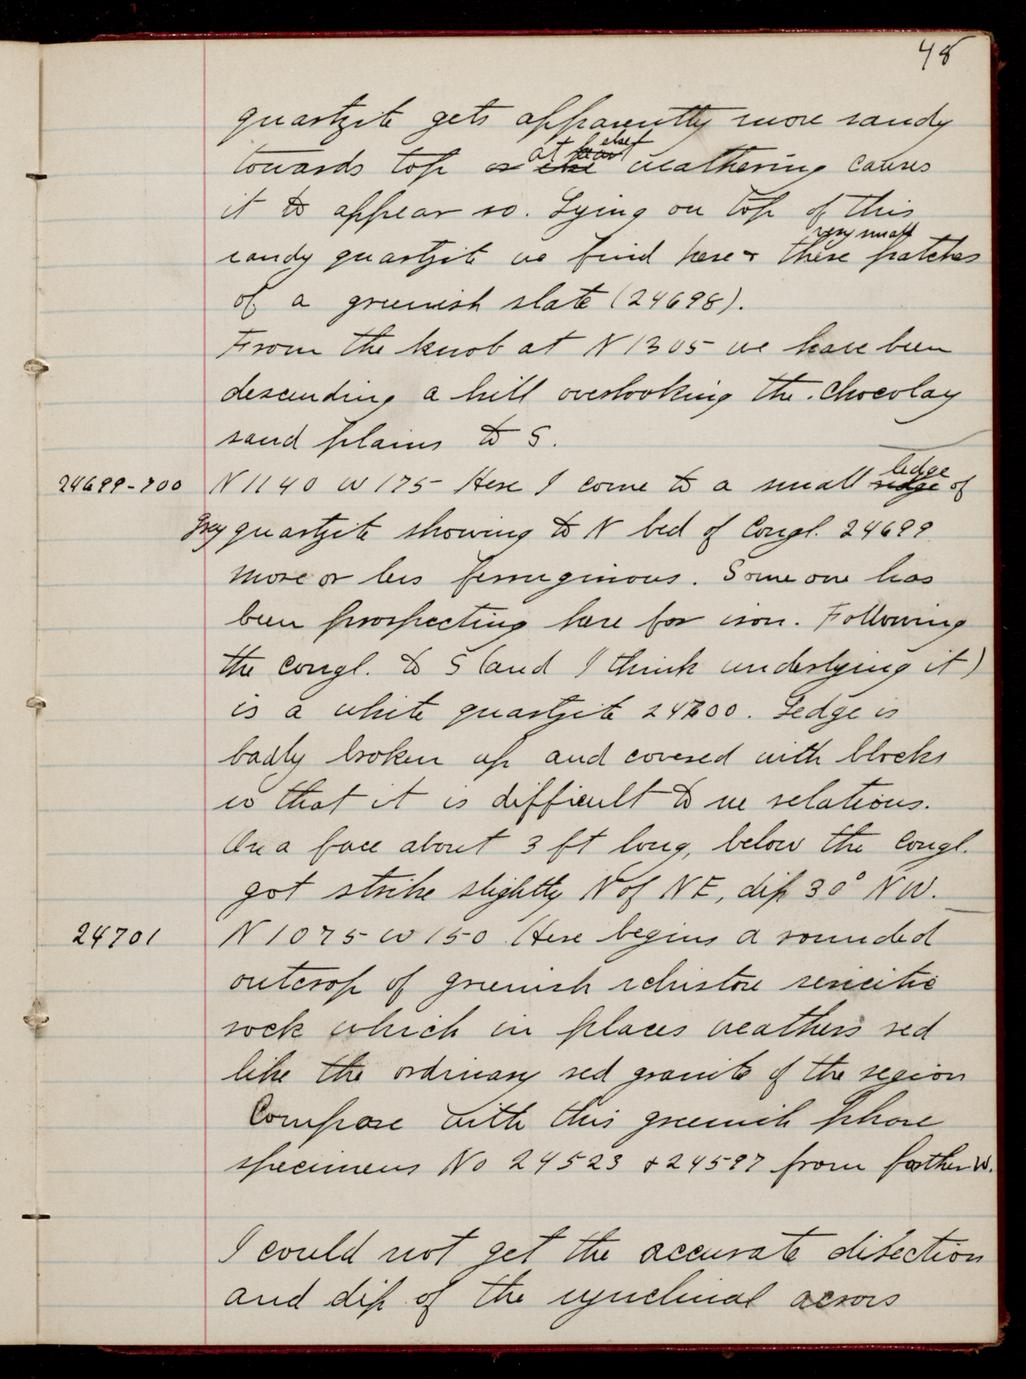 48
quartzite gets apparently more sandy
towards top or else at least weathering causes
it to appear so. Lying on top of this
sandy quartzite we find here & there very small patches
of a greenish slate (24698).
From the knob at N1305 we have been
descending a hill overlooking the Chocolay
sand plains to S.
24699-700 N1140 W175 Here I come to a small ridge ledge of
grey quartzite showing to N bed of Congl. 24699
more or less ferruginous. Some one has
been prospecting here for iron. Following
the Congl. to S (and I think underlying it)
is a white quartzite 24700. Ledge is
badly broken up and covered with blocks
so that it is difficult to see relations.
On a face about 3 ft long, below the Congl.
got strike slightly N of NE, dip 30° NW.
24701 N1075 W150 Here begins a rounded
outcrop of greenish schistose sericitic
rock which in places weathers red
like the ordinary red granite of the region
Compare with this greenish phase
specimens No 24523 & 24597 from farther W.
I could not get the accurate direction
and dip of the synclinal across